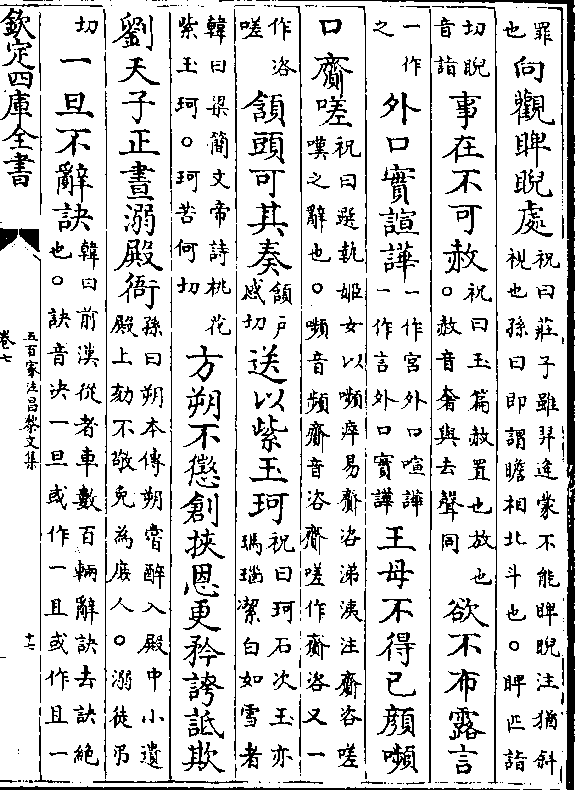 罪也向觀睥睨處祝曰莊子雖羿逢蒙不能睥睨注猶斜視也孫曰即謂瞻相北斗也。睥匹詣
切睨音詣事在不可赦祝曰玉篇赦置也放也。赦音奢與去聲同欲不布露言
一作之外口實諠譁一作宮外口喧譁一作言外口實譁王母不得已顏嚬
口齎嗟祝曰選執姬女以嚬瘁易齎咨涕洟注齎咨嗟嘆之辭也。嚬音頻齎音咨齎嗟作齎咨又一
作咨嗟頷頭可其奏頷戶感切送以紫玉珂祝曰珂石次玉亦瑪瑙潔白如雪者
韓曰梁簡文帝詩桃花紫玉珂。珂苦何切方朔不懲創挾恩更矜誇詆欺
劉天子正晝溺殿衙孫曰朔本傳朔嘗醉入殿中小遺殿上劾不敬免為庶人。溺徒弔
切一旦不辭訣韓曰前漢從者車數百輛辭訣去訣絕也。訣音決一旦或作一且或作且一
欽定四庫全書
五百家注昌黎文集
卷七
十七